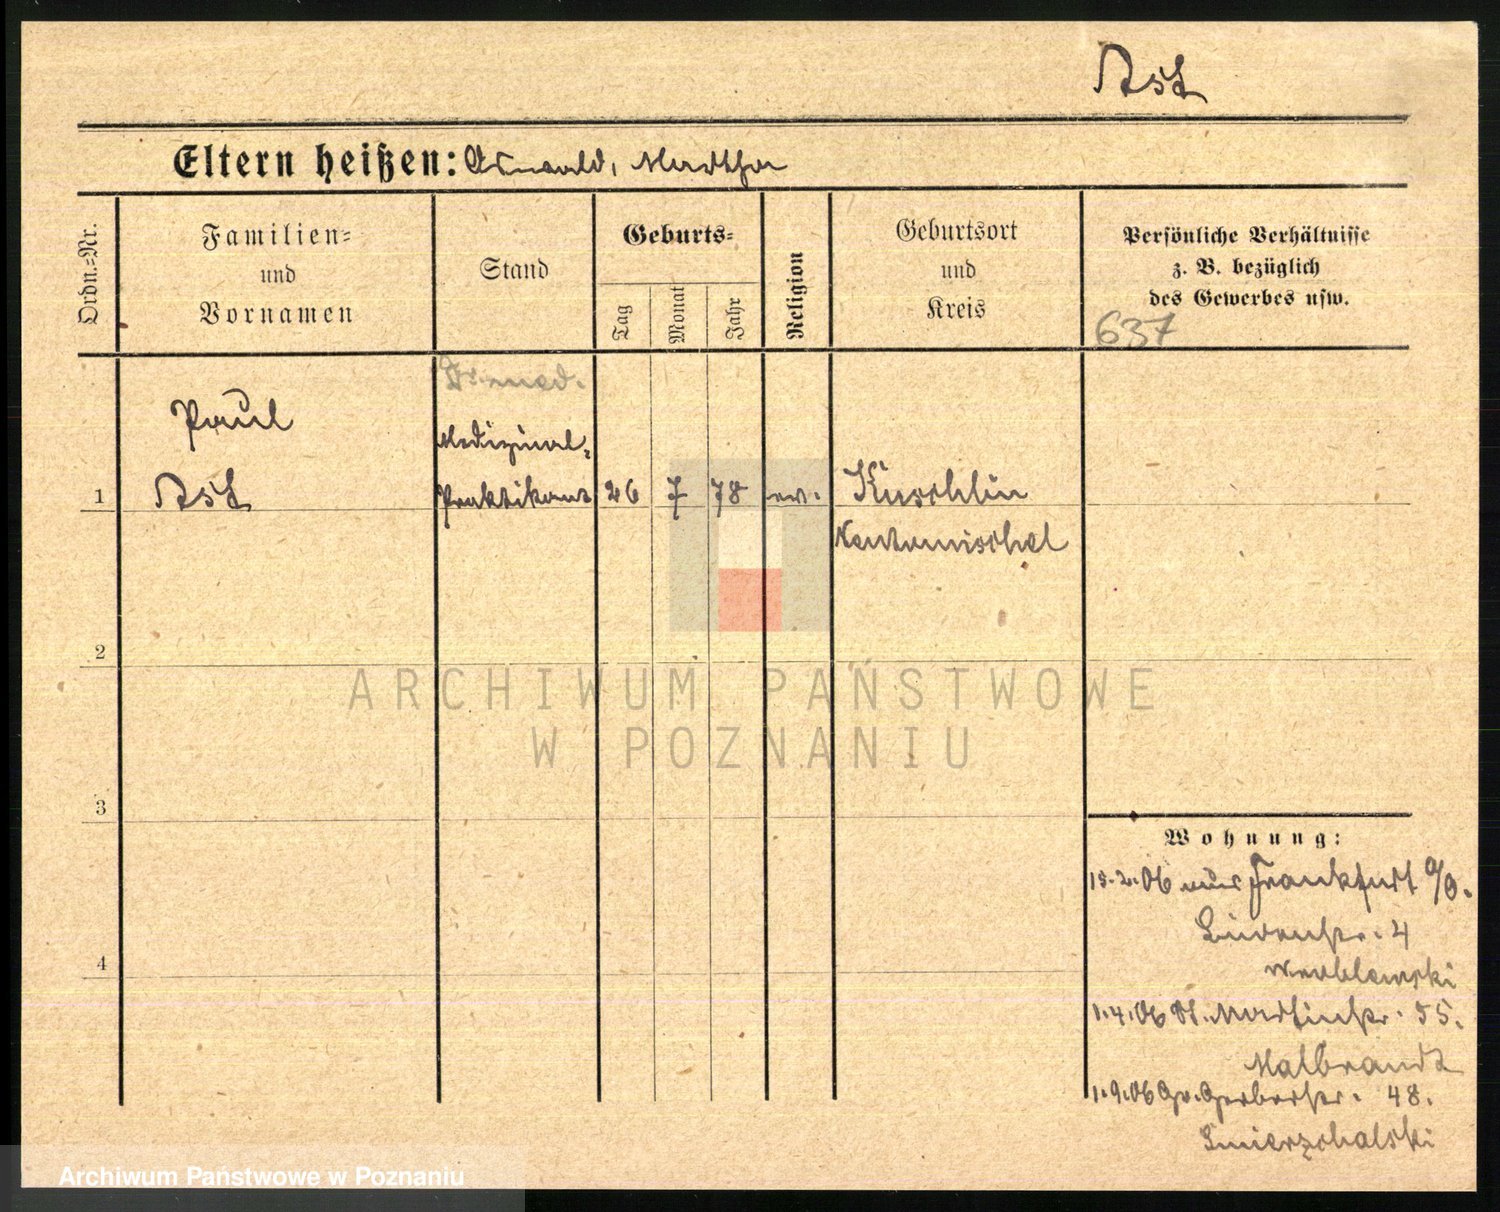 Ast
Eltern heißen: Oswald, Martha
Ordn.-Nr.
Familien-
und
Vornamen
Stand
Geburts-
Tag
Monat
Jahr
Religion
Geburtsort
und
Kreis
Persönliche Verhältnisse
z. B. bezüglich
des Gewerbes usw.
637
Dr. med.
Paul
Medizinal-
1 Ast Praktikant 26 7 78 ev. Kuschlin
Neutomischel
2
3
4
Wohnung:
15.2.06 aus Frankfurt a/O.
4
1.4.06 St. Martinstr. 55.
Malbrandt
1.9.06 Gr. Gerberstr. 48.
Smierzchalski
ARCHIWUM PAŃSTWOWE
W POZNANIU
Archiwum Państwowe w Poznaniu